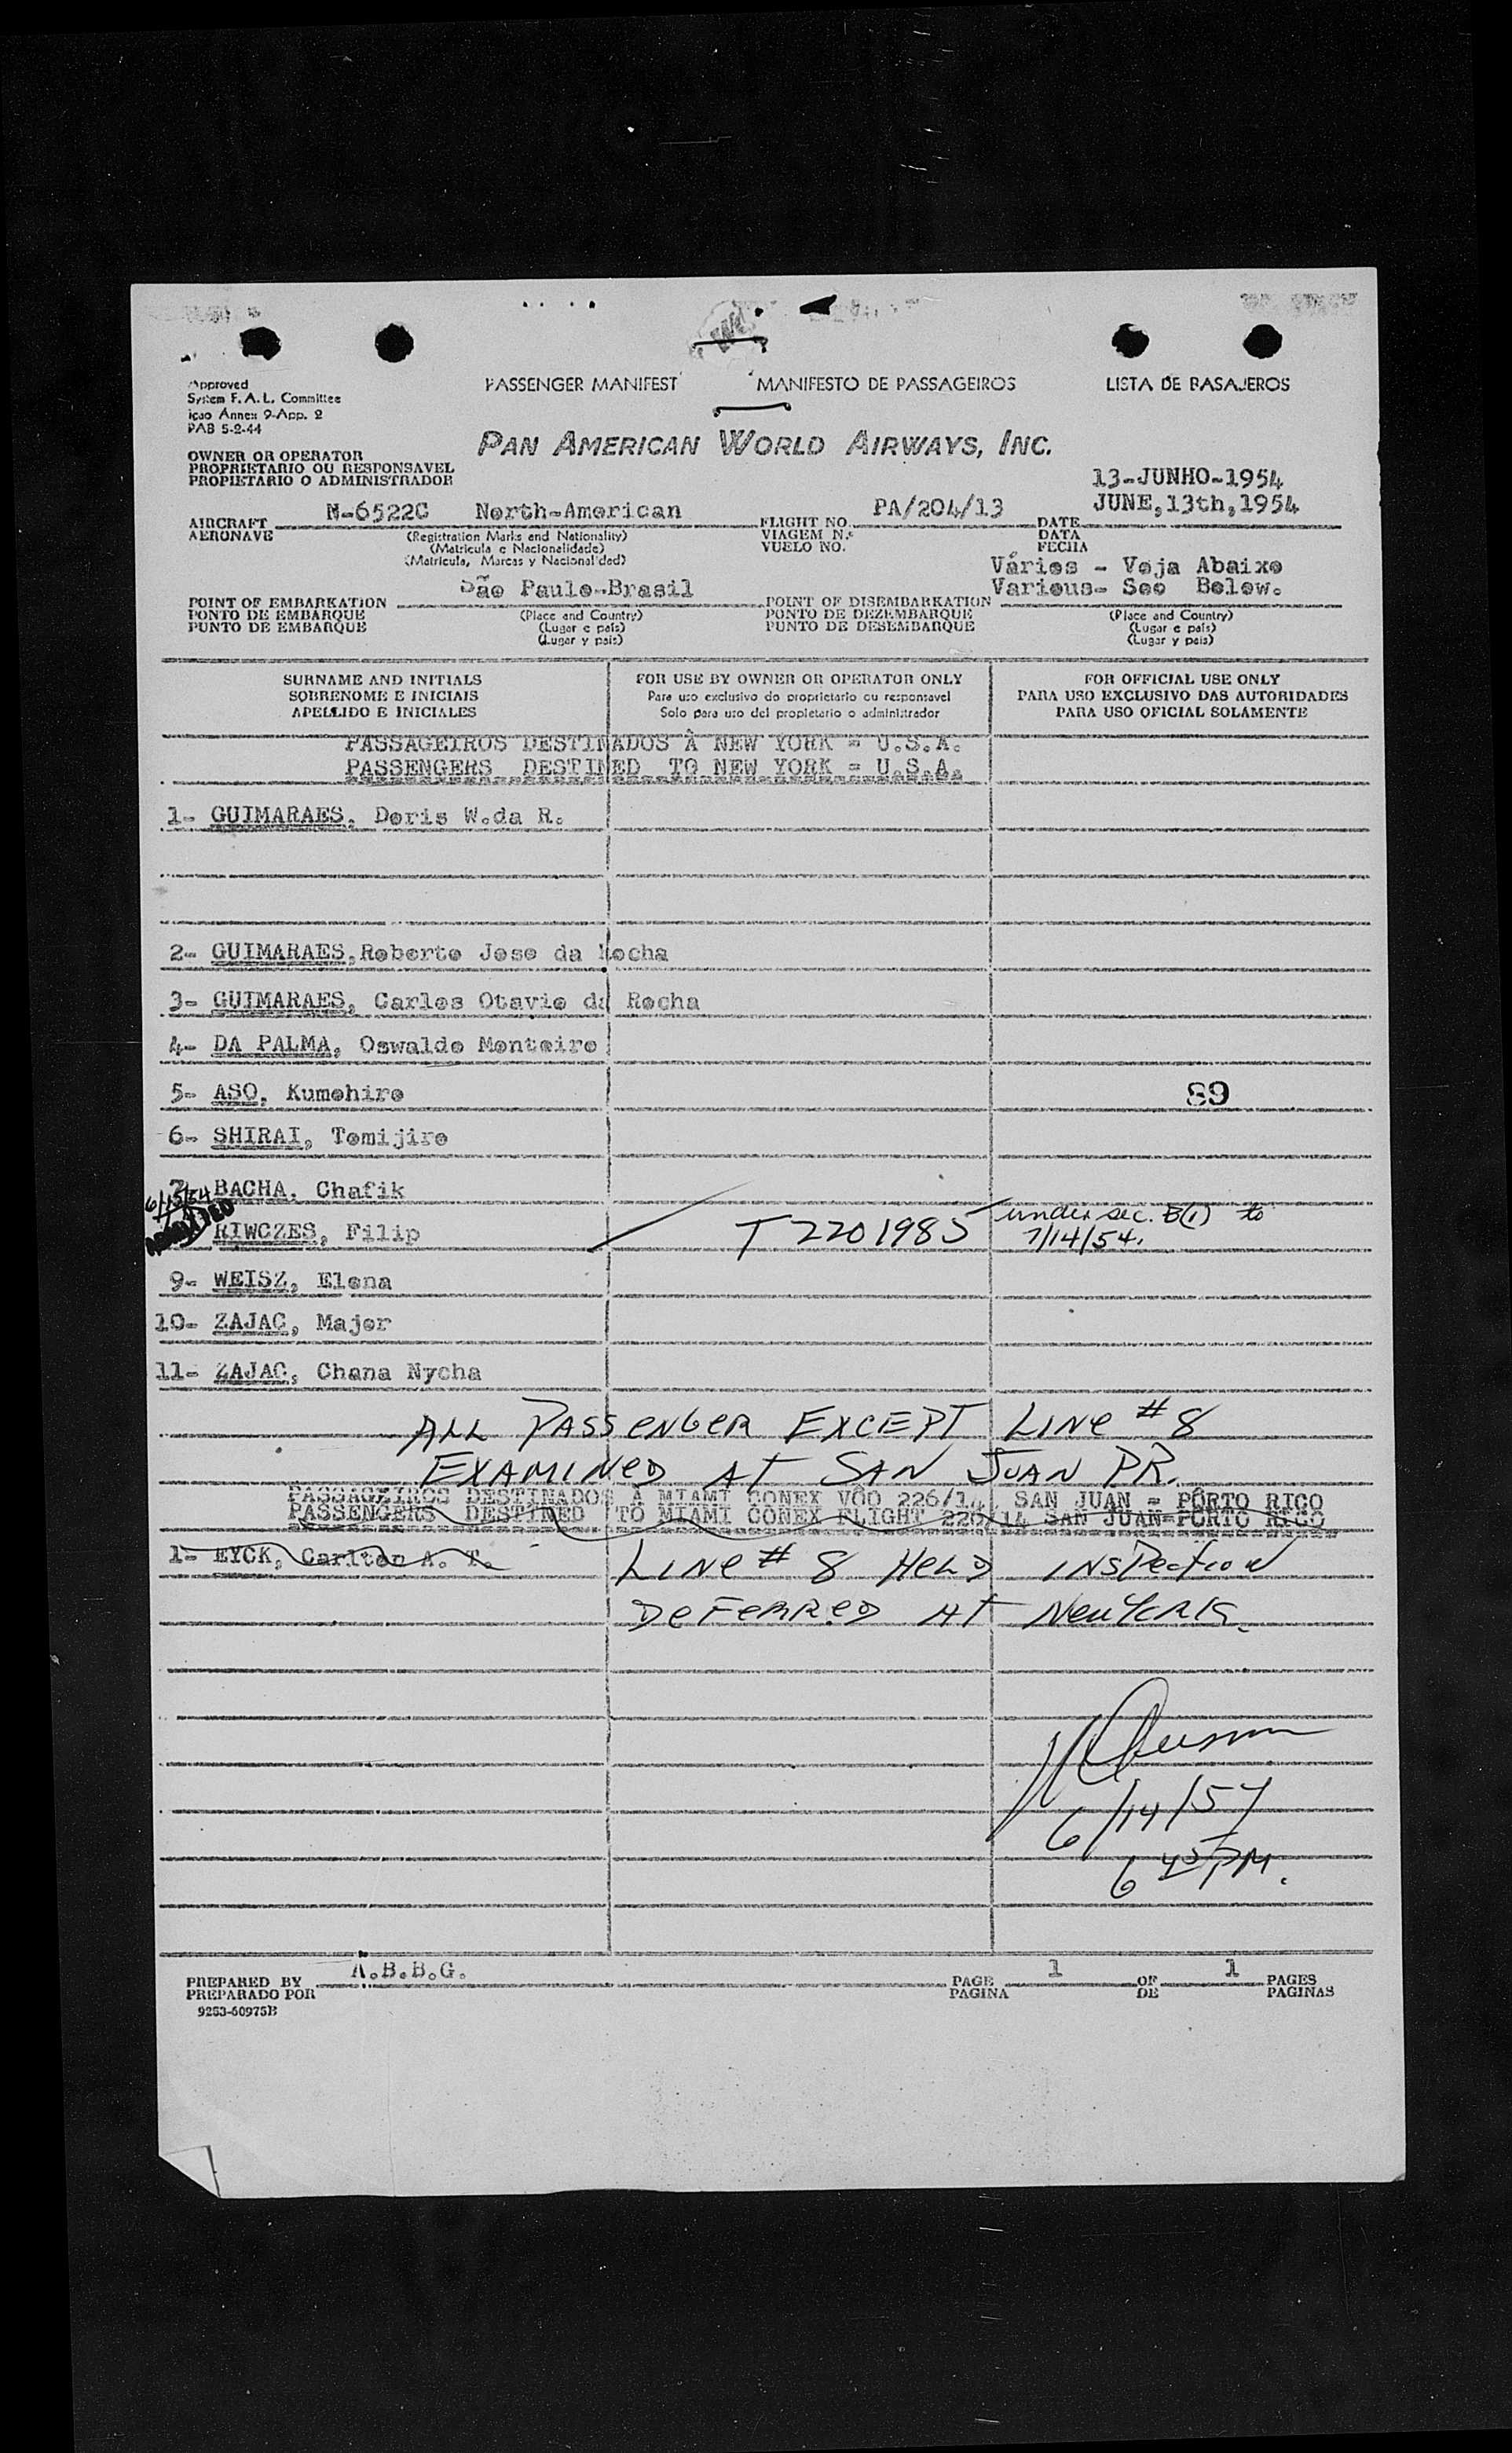 Approved
System F.A.L. Committee
icao Annex 9-App. 2
PAB 5-2-44
PASSENGER MANIFEST MANIFESTO DE PASSAGEIROS LISTA DE PASAJEROS
PAN AMERICAN WORLD AIRWAYS, INC.
OWNER OR OPERATOR
PROPRIETARIO OU RESPONSAVEL
PROPIETARIO O ADMINISTRADOR
13-JUNHO-1954
JUNE,13th,1954
N-6522C North-American PA/204/13
AIRCRAFT FLIGHT NO. DATE
AERONAVE (Registration Marks and Nationality) VIAGEM N.º DATA
(Matricula e Nacionalidade) VUELO NO. FECHA
(Matricula, Marcas y Nacionalidad)
Vários - Veja Abaixo
São Paulo-Brasil Various- See Below.
POINT OF EMBARKATION POINT OF DISEMBARKATION
PONTO DE EMBARQUE (Place and Country) PONTO DE DEZEMBARQUE (Place and Country)
PUNTO DE EMBARQUE (Lugar e pais) PUNTO DE DESEMBARQUE (Lugar e pais)
(Lugar y pais) (Lugar y pais)
SURNAME AND INITIALS FOR USE BY OWNER OR OPERATOR ONLY FOR OFFICIAL USE ONLY
SOBRENOME E INICIAIS Para uso exclusivo do proprietario ou responsavel PARA USO EXCLUSIVO DAS AUTORIDADES
APELLIDO E INICIALES Solo para uso del propietario o administrador PARA USO OFICIAL SOLAMENTE
PASSAGEIROS DESTINADOS À NEW YORK = U.S.A.
PASSENGERS DESTINED TO NEW YORK = U.S.A.
1- GUIMARAES, Doris W.da R.
2- GUIMARAES,Roberto Jose da Rocha
3- GUIMARAES, Carlos Otavio da Rocha
4- DA PALMA, Oswaldo Monteiro
5- ASO, Kumohiro 89
6- SHIRAI, Tomijiro
7- BACHA, Chafik
6/15/54
ADMITTED RIWCZES, Filip T2201985 under sec. B(1) to
7/14/54.
9- WEISZ, Elena
10- ZAJAC, Major
11- ZAJAC, Chana Nycha
ALL PASSENGER EXCEPT LINE #8
EXAMINED AT SAN JUAN PR.
PASSAGEIROS DESTINADOS À MIAMI CONEX VÔO 226/14 SAN JUAN = PÔRTO RICO
PASSENGERS DESTINED TO MIAMI CONEX FLIGHT 226/14 SAN JUAN=PORTO RICO
1- EYCK, Carlton A. T. LINE #8 HELD INSPECTION
DEFERRED AT NEW YORK.
6/14/54
6 45 PM.
A.B.B.G.
PREPARED BY PAGE 1 OF 1 PAGES
PREPARADO POR PAGINA DE PAGINAS
9253-60975B